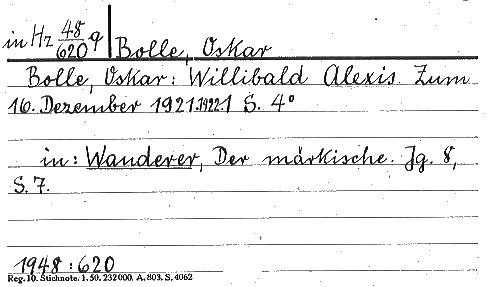 in Hz 48/620 q Bolle, Oskar
Bolle, Oskar: Willibald Alexis. Zum
16. Dezember 1921. 1922. 1 S. 4°
in: Wanderer, Der märkische. Jg. 8,
S. 7.
1948 : 620
Reg. 10. Stichnote. 1. 50. 232000. A. 803. S. 4062